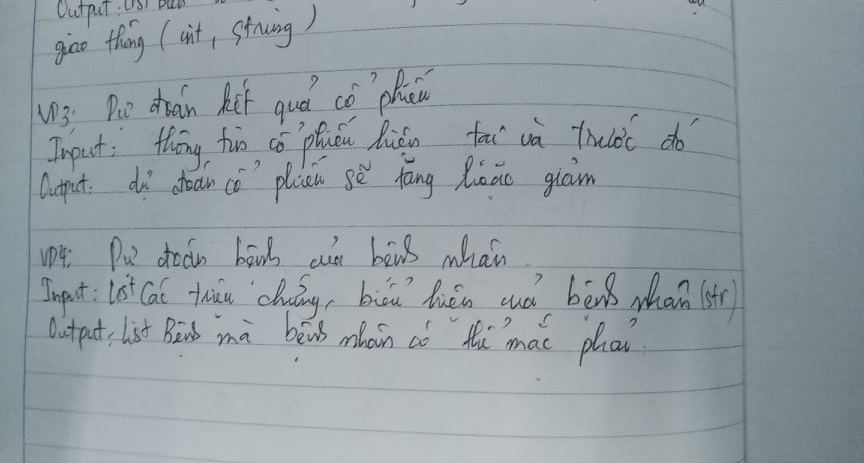 Output: List biển
giao thông (int, string)
VD3: Dự đoán kết quả cổ phiếu
Input: thông tin cổ phiếu hiện tại và trước đó
Output: dự đoán cổ phiếu sẽ tăng hoặc giảm
VD4: Dự đoán bệnh của bệnh nhân
Input: list các triệu chứng, biểu hiện của bệnh nhân (str)
Output: list Bệnh mà bệnh nhân có thể mắc phải.